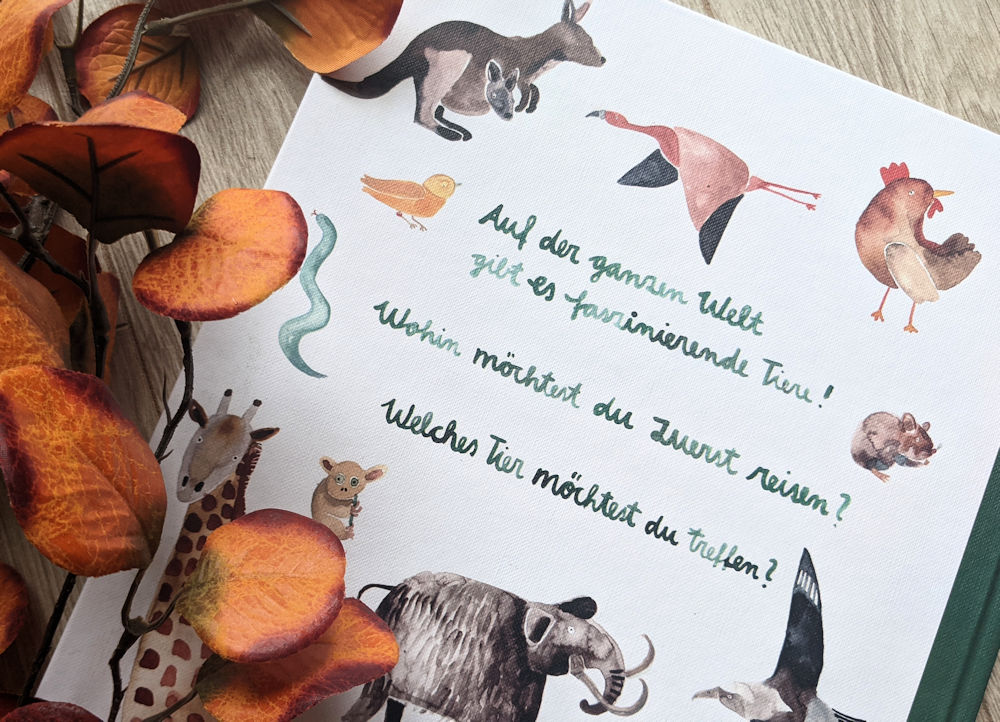 Auf der ganzen Welt
gibt es faszinierende Tiere!
Wohin möchtest du zuerst reisen?
Welches Tier möchtest du treffen?